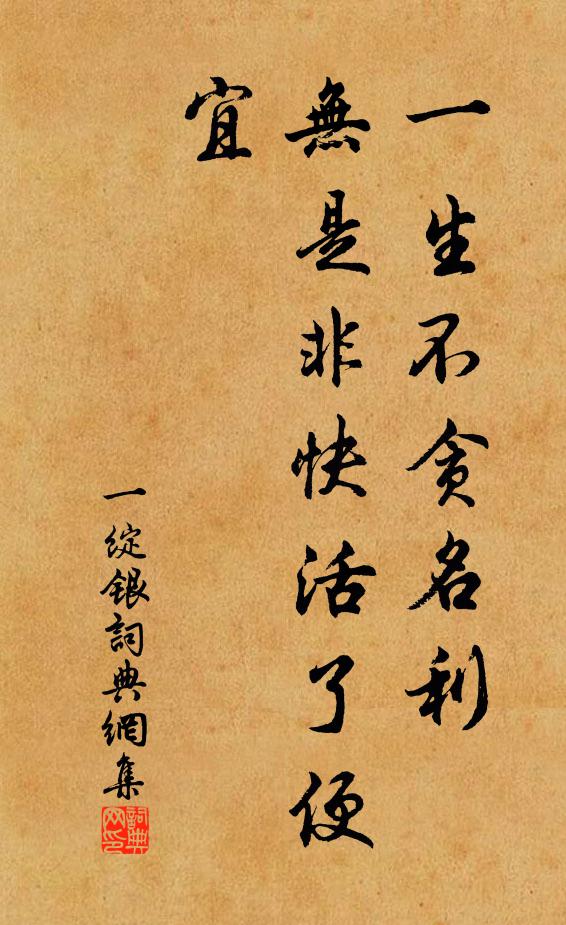 一生不貪名利
無是非快活了便
宜
一綻銀詞典網集
詞典
网印